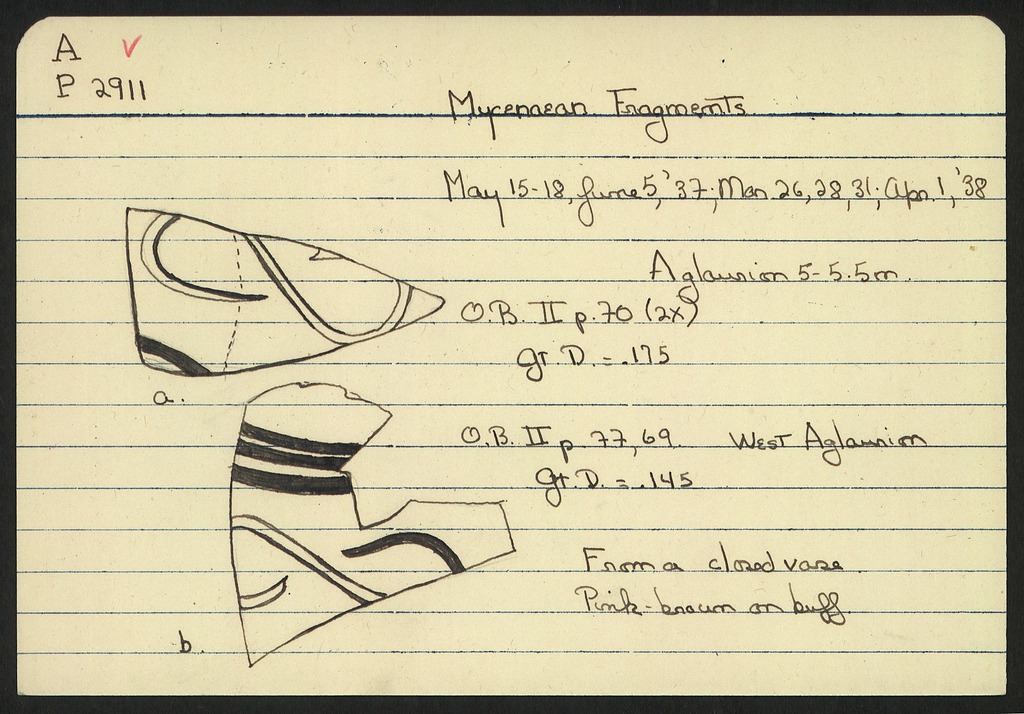 A ✓
P 2911
Mycenaean Fragments.
May 15-18, June 5, '37; Mar. 26, 28, 31; Apr. 1, '38
Aglaurion 5-5.5m.
O.B. II p. 70 (2x)
gr. D. = .175
a.
O.B. II p 77, 69. West Aglaurion
gr. D. = .145
From a closed vase.
Pink-brown on buff.
b.